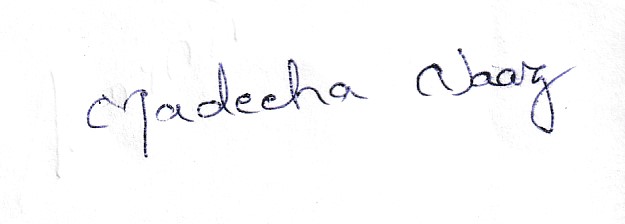 Madeeha Naaz